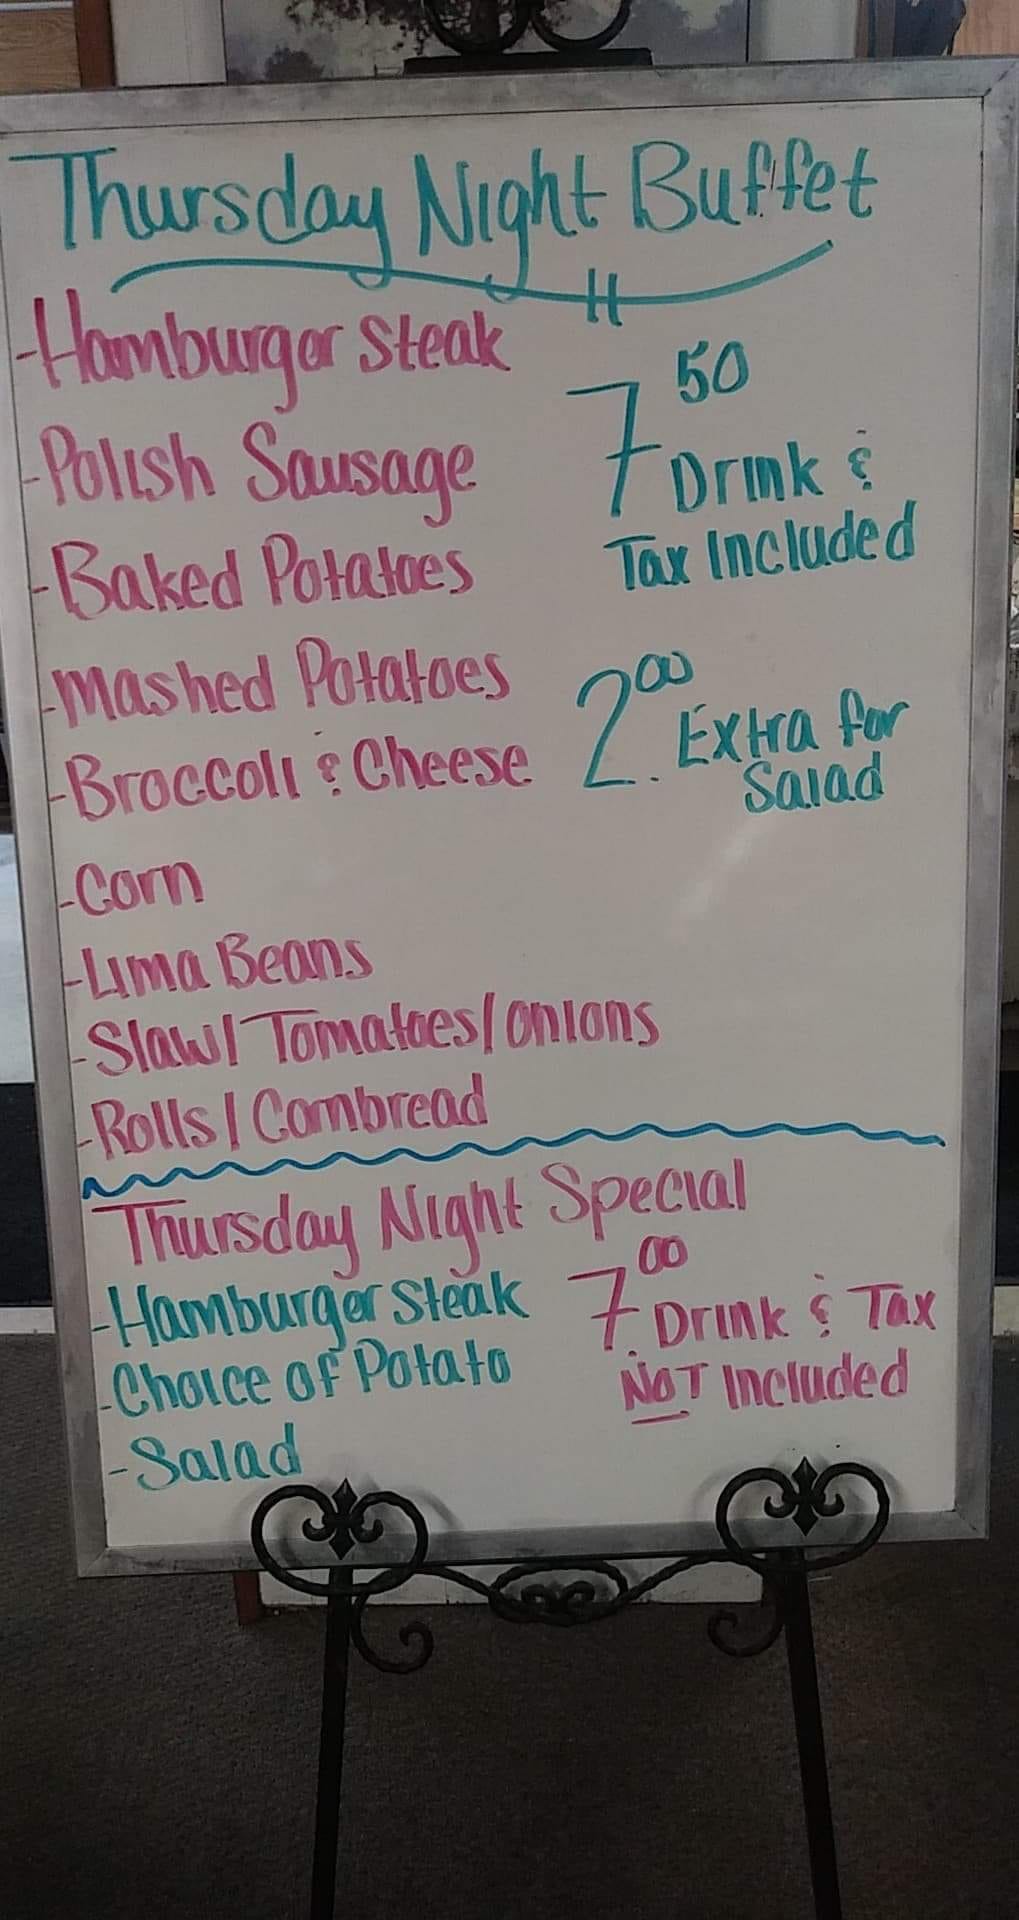 Thursday Night Buffet
-Hamburger Steak
7 50
-Polish Sausage
Drink &
Tax Included
-Baked Potatoes
-Mashed Potatoes
2.00 Extra for
Salad
-Broccoli & Cheese
-Corn
-Lima Beans
-Slaw/Tomatoes/onions
-Rolls/Cornbread
Thursday Night Special
-Hamburger Steak
7.00 Drink & Tax
NOT Included
-Choice of Potato
-Salad